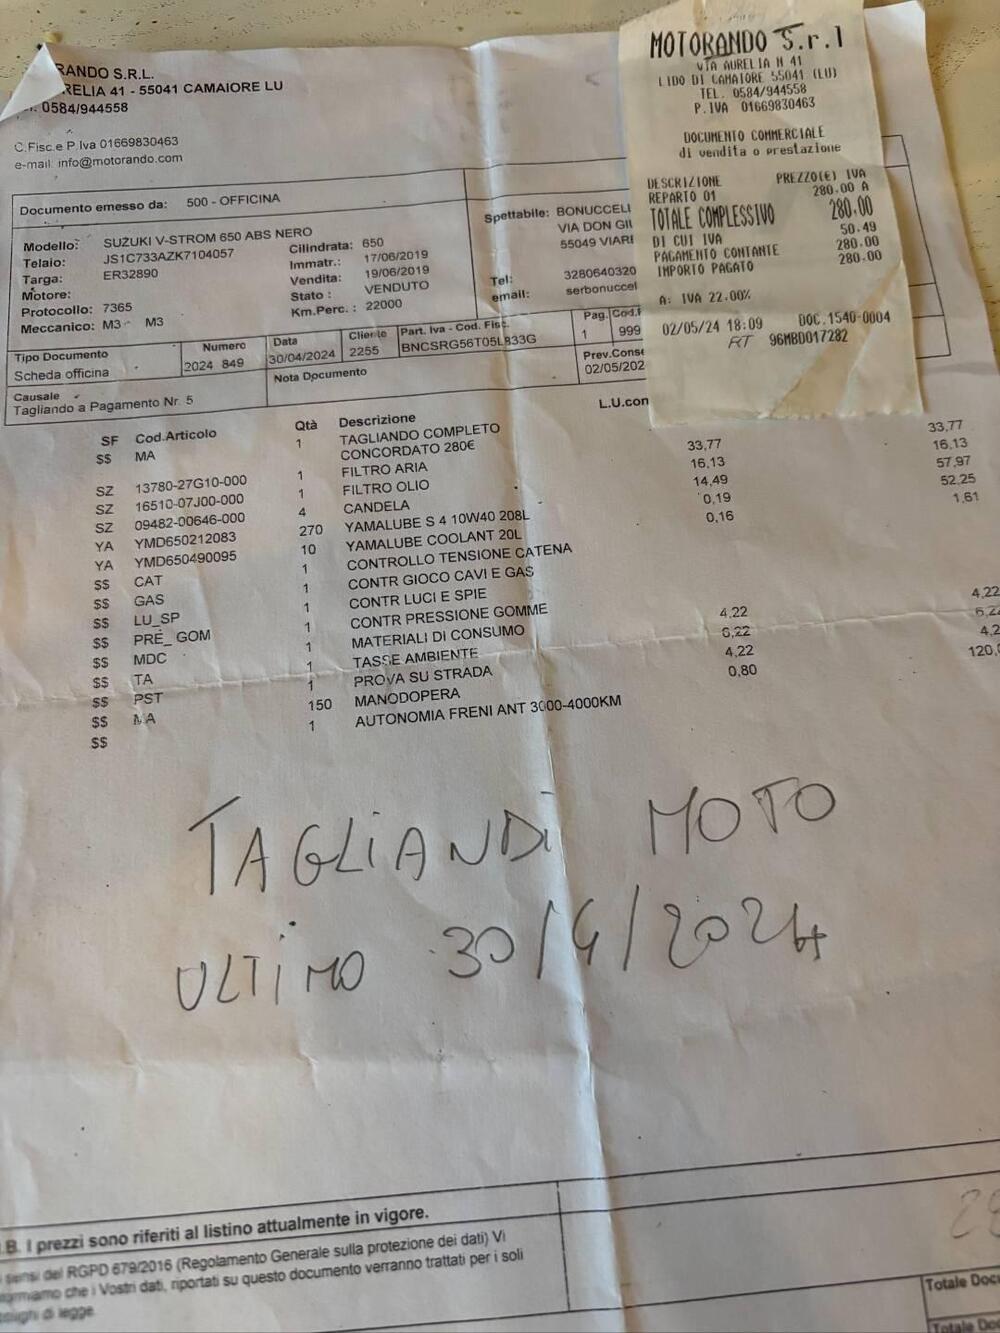 RANDO S.R.L.
RELIA 41 - 55041 CAMAIORE LU
0584/944558
C.Fisc.e P.Iva 01669830463
e-mail: info@motorando.com
MOTORANDO S.r.l
VIA AURELIA N 41
LIDO DI CAMAIORE 55041 (LU)
TEL. 0584/944558
P.IVA 01669830463
DOCUMENTO COMMERCIALE
di vendita o prestazione
DESCRIZIONE PREZZO(€) IVA
REPARTO 01 280.00 A
TOTALE COMPLESSIVO 280.00
DI CUI IVA 50.49
PAGAMENTO CONTANTE 280.00
IMPORTO PAGATO 280.00
A: IVA 22.00%
02/05/24 18:09 DOC.1540-0004
RT 96MBD017282
Documento emesso da: 500 - OFFICINA
Modello: SUZUKI V-STROM 650 ABS NERO
Telaio: JS1C733AZK7104057 Cilindrata: 650
Targa: ER32890 Immatr.: 17/06/2019
Motore: Vendita: 19/06/2019
Protocollo: 7365 Stato : VENDUTO
Meccanico: M3 M3 Km.Perc.: 22000
Spettabile: BONUCCELI
VIA DON GIU
55049 VIARI
Tel: 3280640320
email: serbonuccel
Tipo Documento Numero Data Cliente Part. Iva - Cod. Fisc. Pag. Cod.
Scheda officina 2024 849 30/04/2024 2255 BNCSRG56T05L833G 1 999
Causale Nota Documento Prev.Conse
Tagliando a Pagamento Nr. 5 02/05/202
SF Cod.Articolo Qtà Descrizione L.U.con
$$ MA 1 TAGLIANDO COMPLETO
CONCORDATO 280€
SZ 13780-27G10-000 1 FILTRO ARIA 33,77 33,77
SZ 16510-07J00-000 1 FILTRO OLIO 16,13 16,13
SZ 09482-00646-000 4 CANDELA 14,49 57,97
YA YMD650212083 270 YAMALUBE S 4 10W40 208L 0,19 52,25
YA YMD650490095 10 YAMALUBE COOLANT 20L 0,16 1,61
$$ CAT 1 CONTROLLO TENSIONE CATENA
$$ GAS 1 CONTR GIOCO CAVI E GAS
$$ LU_SP 1 CONTR LUCI E SPIE
$$ PRE_GOM 1 CONTR PRESSIONE GOMME
$$ MDC 1 MATERIALI DI CONSUMO 4,22 4,22
$$ TA 1 TASSE AMBIENTE 6,22 6,22
$$ PST 1 PROVA SU STRADA 4,22 4,2
$$ MA 150 MANODOPERA 0,80 120,0
$$ 1 AUTONOMIA FRENI ANT 3000-4000KM
TAGLIANDI MOTO
ULTIMO 30/4/2024
.B. I prezzi sono riferiti al listino attualmente in vigore.
sensi del RGPD 679/2016 (Regolamento Generale sulla protezione dei dati) Vi
che i Vostri dati, riportati su questo documento verranno trattati per i soli
di legge.
Totale Doc
Totale Do